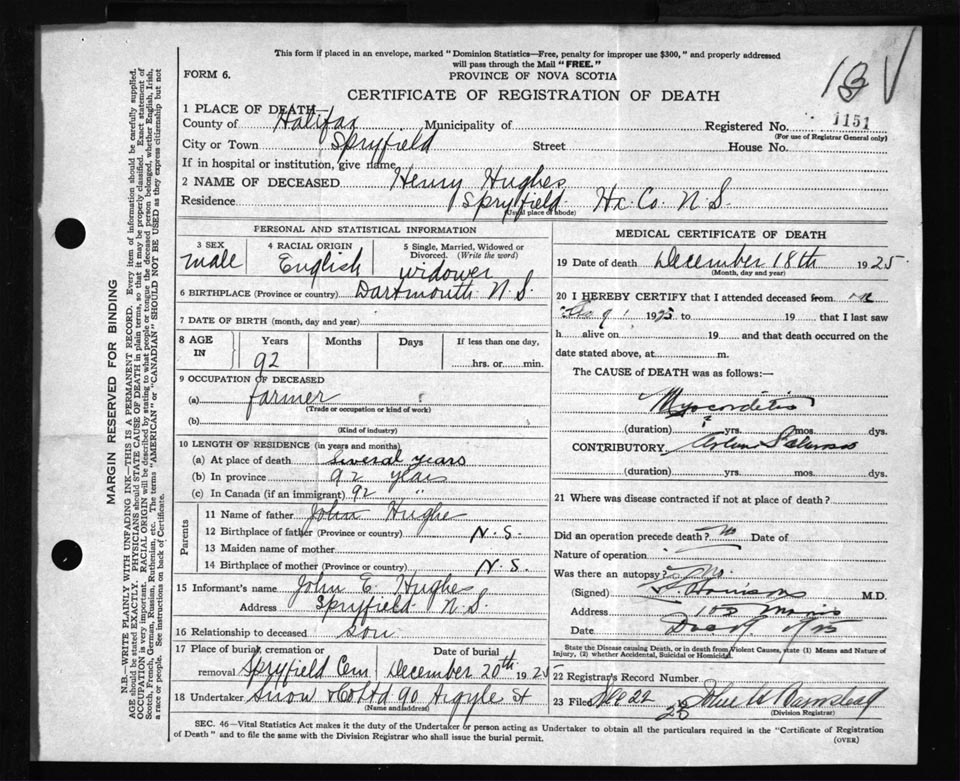 This form if placed in an envelope, marked "Dominion Statistics—Free, penalty for improper use $300," and properly addressed
will pass through the Mail "FREE."
FORM 6.
PROVINCE OF NOVA SCOTIA
13 V
CERTIFICATE OF REGISTRATION OF DEATH
1 PLACE OF DEATH—
County of Halifax Municipality of Registered No. 1151
(For use of Registrar General only)
City or Town Spryfield Street House No.
If in hospital or institution, give name
2 NAME OF DECEASED Henry Hughes
Residence Spryfield Hx. Co. N.S.
(Usual place of abode)
PERSONAL AND STATISTICAL INFORMATION
3 SEX
male
4 RACIAL ORIGIN
English
5 Single, Married, Widowed or
Divorced. (Write the word)
widower
6 BIRTHPLACE (Province or country) Dartmouth N.S.
7 DATE OF BIRTH (month, day and year)
8 AGE IN
Years Months Days If less than one day,
92 hrs. or min.
9 OCCUPATION OF DECEASED
(a) farmer
(Trade or occupation or kind of work)
(b)
(Kind of industry)
10 LENGTH OF RESIDENCE (in years and months)
(a) At place of death Several years
(b) In province 92 years
(c) In Canada (if an immigrant) 92 "
Parents
11 Name of father John Hughe
12 Birthplace of father (Province or country) N.S.
13 Maiden name of mother
14 Birthplace of mother (Province or country) N.S.
15 Informant's name John E. Hughes
Address Spryfield N.S.
16 Relationship to deceased son
17 Place of burial, cremation or Date of burial
removal Spryfield Cem December 20th 1925
18 Undertaker Snow & Co Ltd 90 Argyle St
(Name and address)
MEDICAL CERTIFICATE OF DEATH
19 Date of death December 18th 1925.
(Month, day and year)
20 I HEREBY CERTIFY that I attended deceased from
1925 to 19 , that I last saw
h alive on 19 and that death occurred on the
date stated above, at m.
The CAUSE of DEATH was as follows:—
Myocorditis
(duration) yrs. mos. dys.
CONTRIBUTORY
(duration) yrs. mos. dys.
21 Where was disease contracted if not at place of death?
Did an operation precede death? no Date of
Nature of operation
Was there an autopsy? No.
(Signed) M.D.
Address 105 Morris
Date
State the Disease causing Death, or in death from Violent Causes, state (1) Means and Nature of
Injury, (2) whether Accidental, Suicidal or Homicidal.
22 Registrar's Record Number
23 Filed Dec 22 25
(Division Registrar)
SEC. 46—Vital Statistics Act makes it the duty of the Undertaker or person acting as Undertaker to obtain all the particulars required in the "Certificate of Registration
of Death" and to file the same with the Division Registrar who shall issue the burial permit.
(OVER)
MARGIN RESERVED FOR BINDING
N.B.—WRITE PLAINLY WITH UNFADING INK—THIS IS A PERMANENT RECORD. Every item of information should be carefully supplied.
AGE should be stated EXACTLY. PHYSICIANS should STATE CAUSE OF DEATH in plain terms, so that it may be properly classified. Exact statement of
OCCUPATION is very important. RACIAL ORIGIN will be described by stating to what people or tongue the deceased person belonged, whether English, Irish,
Scotch, French, German, Russian, Ruthenian, etc. The terms "AMERICAN" or "CANADIAN" SHOULD NOT BE USED as they express citizenship but not
a race or people. See instructions on back of Certificate.